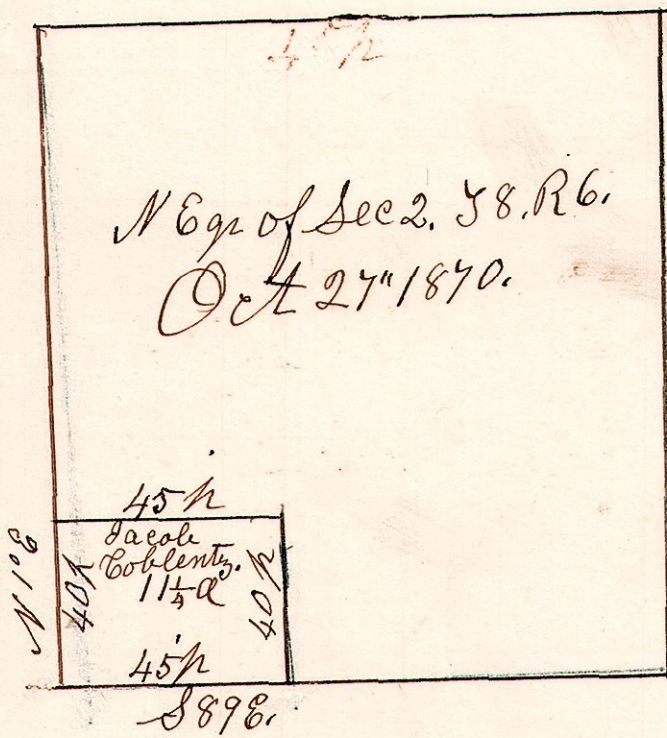 45 p
N E qr of Sec 2. T 8. R 6.
Oct 27" 1870.
45 p
Jacob
Coblentz.
11¼ a
40 p
40 p
45 p
N 1° E
S 89 E.